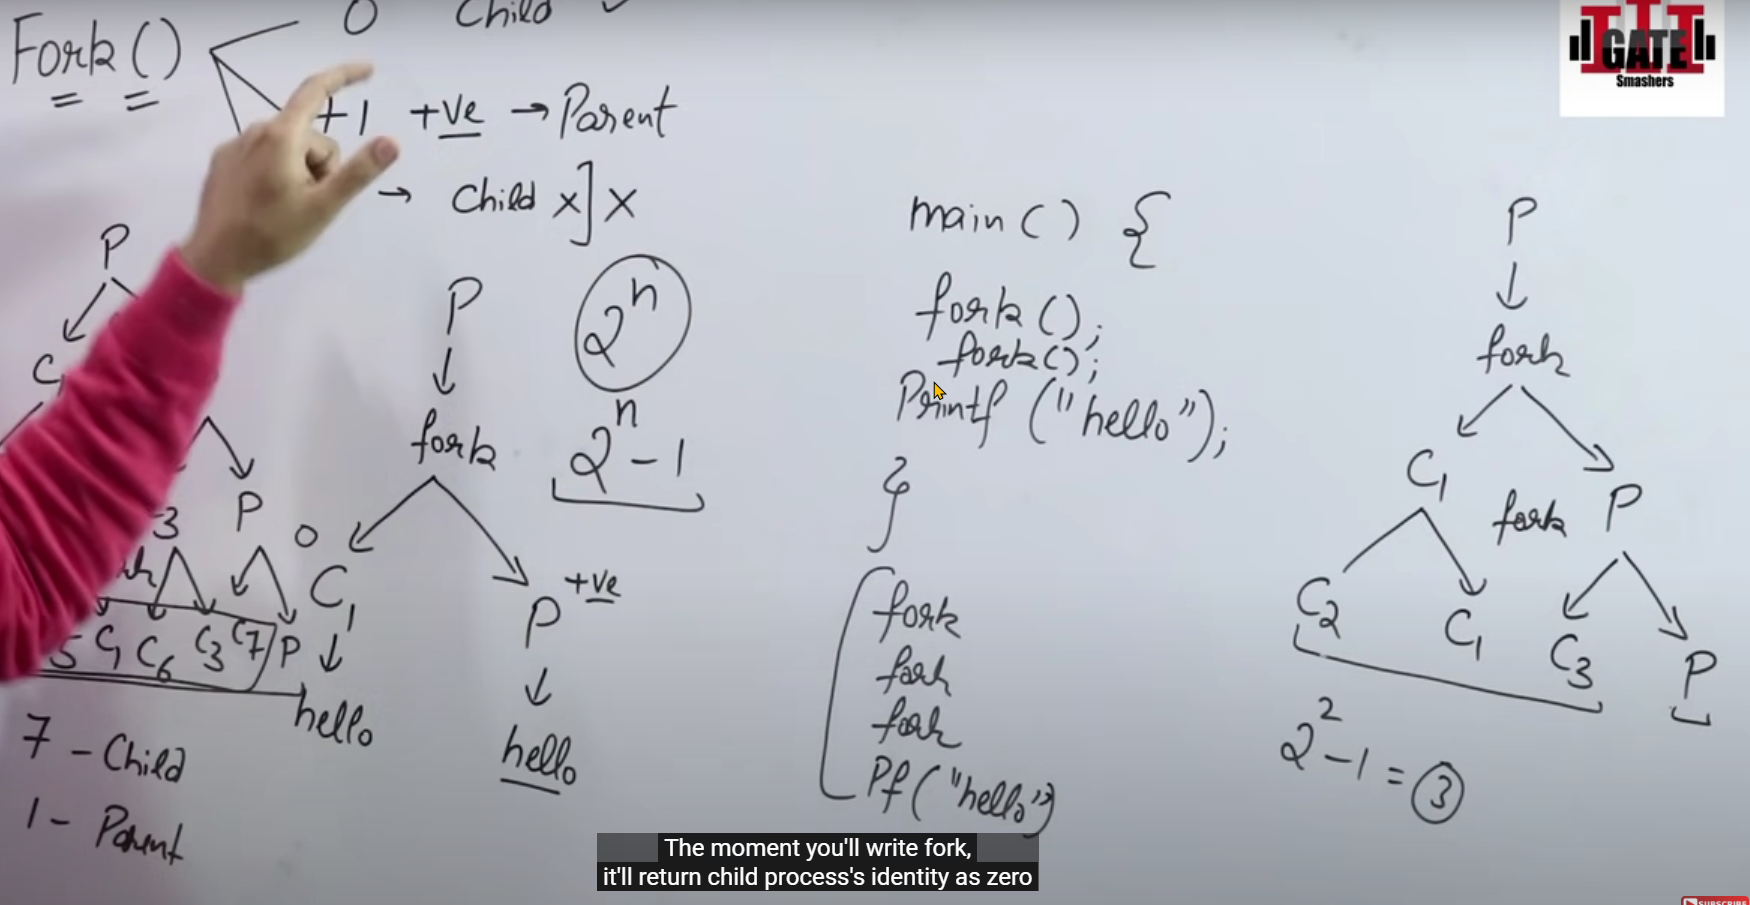 Fork()
0 Child
+1 +ve → Parent
→ Child x] x
P
C
P
3
C4 C6 C3 C7 P
7 - Child
1 - Parent
P
fork
0
C1
P +ve
hello
hello
2^n
2^n - 1
main() {
fork();
fork();
Printf ("hello");
}
fork
fork
fork
Pf ("hello")
P
fork
C1 fork P
C2 C1 C3 P
2^2 - 1 = 3
GATE
Smashers
The moment you'll write fork,
it'll return child process's identity as zero
SUBSCRIBE